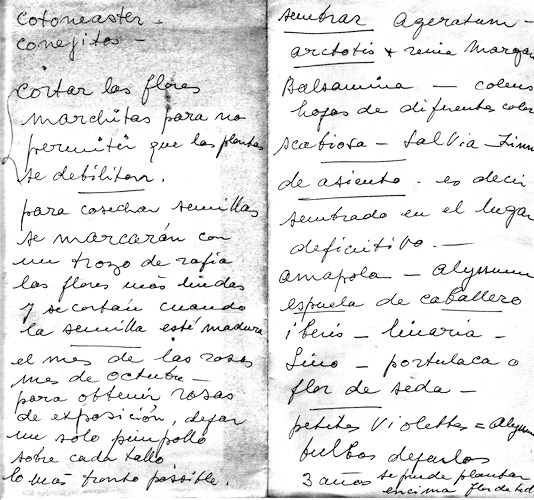 Cotoneaster -
conejitos -
cortar las flores
marchitas para no
permitir que las plantas
se debiliten.
para cosechar semillas
se marcarán con
un trozo de rafia
las flores más lindas
y se cortan cuando
la semilla esté madura
el mes de las rosas
mes de octubre -
para obtener rosas
de exposición, dejar
un solo pimpollo
sobre cada tallo
lo más pronto possible.
sembrar ageratum -
arctotis + reina Margar
Balsamina - coleus
hojas de diferentes color
scabiosa - salvia - Zinn
de asiento. es decir
sembrado en el lugar
definitivo. -
amapola - alyssum
espuela de caballero
iberis - linaria -
Lino - portulaca o
flor de seda -
petites violettes = alyssum
bulbos dejarlos
3 años se puede plantar
encima flor de sed